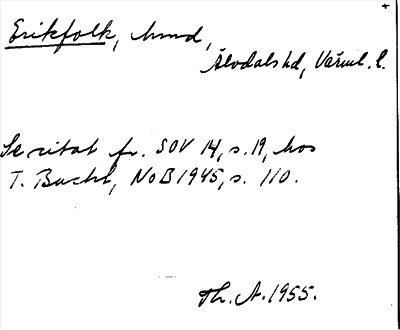 Erikfolk, hmd,
Älvdals hd, Värml. l.
Se citat fr. SOV 14, s. 19, hos
T. Bucht, NoB 1945, s. 110.
Th. A. 1955.